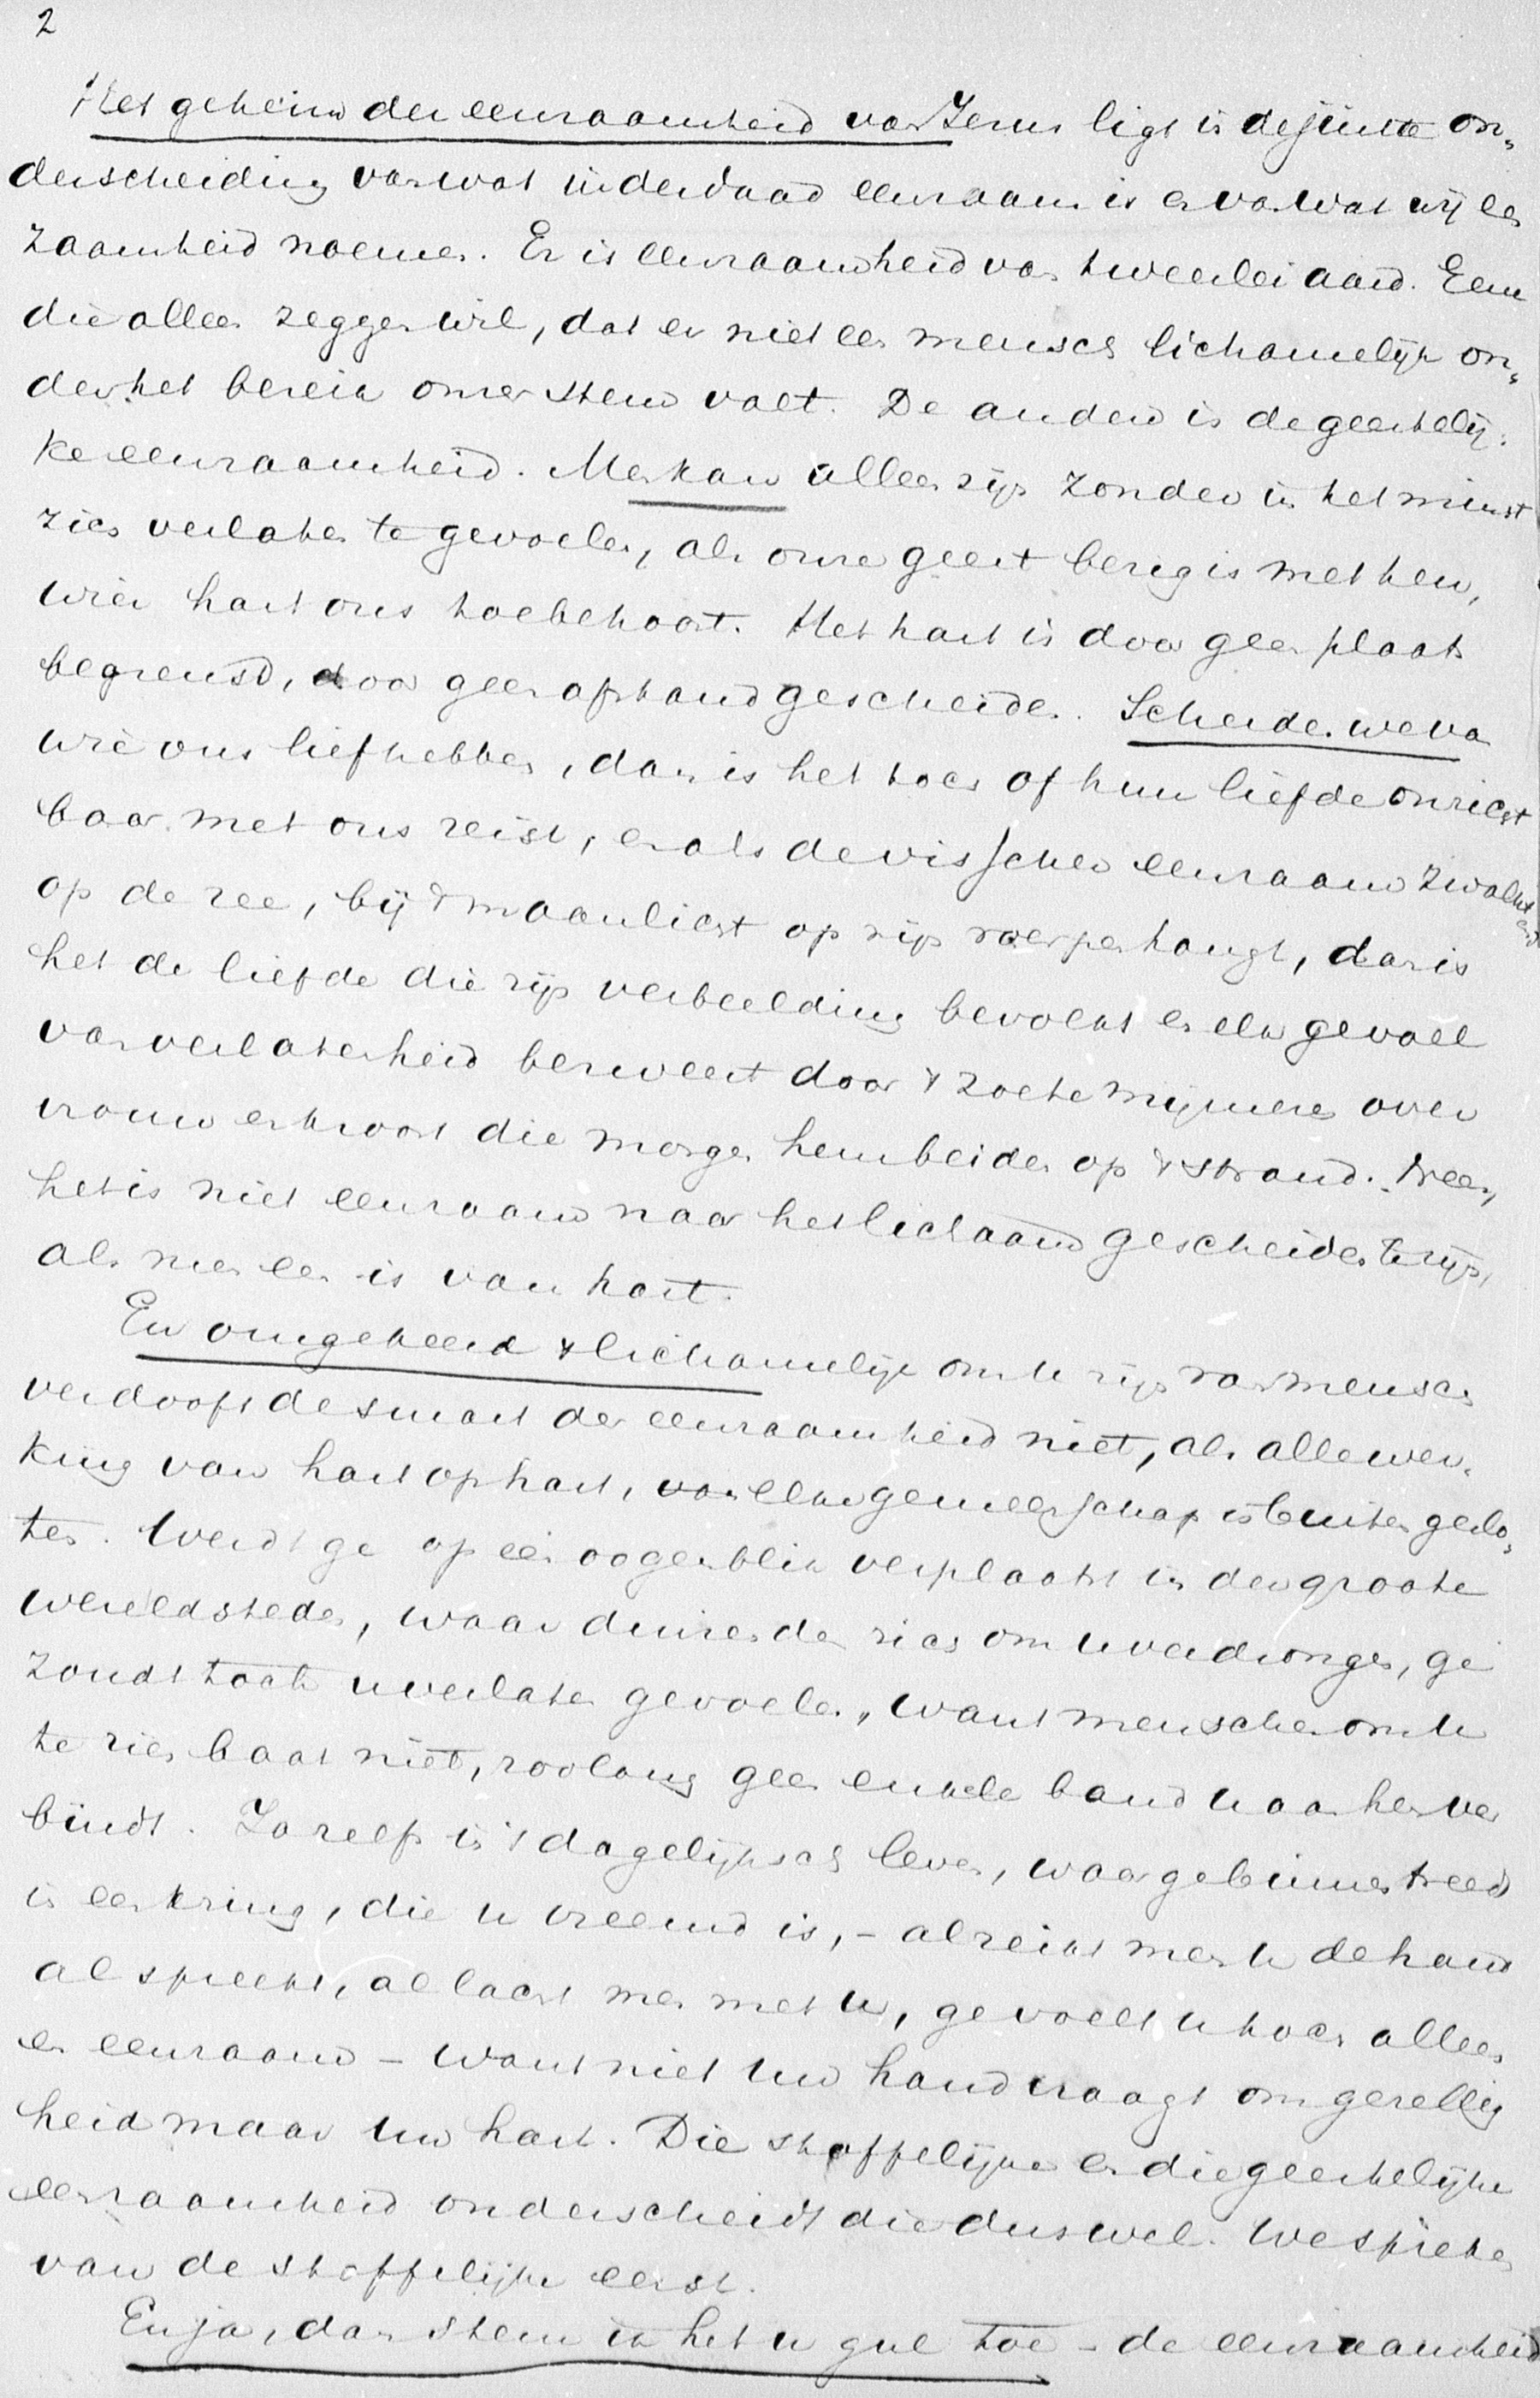 2
Het geheim der eenzaamheid van Jezus ligt in de juiste on„
derscheiding van wat inderdaad eenzaam is en van wat wij een
zaamheid noemen. Er is eenzaamheid van tweeërlei aard. Eene
die alleen zeggen wil, dat er niet een mensch lichamelijk on„
der het bereik onzer stem valt. De andere is de geestelij„
ke eenzaamheid. Men kan alleen zijn zonder in het minst
zich verlaten te gevoelen, als onze geest bezig is met hen,
wier hart ons toebehoort. Het hart is door geen plaats
begrensd, door geen afstand gescheiden. Scheiden we van
wie ons liefhebben, dan is het toch of hun liefde onzicht
baar met ons reist, en als de visscher eenzaam zwalkt
op de zee, bij 't maanlicht op zijn roerpen hangt, dan is
het de liefde die zijn verbeelding bevolkt en elk gevoel
van verlatenheid bezweert door 't zoete mijmeren over
vrouw en kroost die morgen hem beiden op 't strand. Neen,
het is niet eenzaam naar het lichaam gescheiden te zijn,
als men een is van hart.
En omgekeerd 't lichamelijk omte zijn van mensch
verdooft de smart der eenzaamheid niet, als alle wer„
king van hart op hart, van elke gemeenschap is buiten geslo„
ten. Werdt ge op een oogenblik verplaatst in der groote
wereldsteden, waar duizenden zich om u verdrongen, ge
zoudt toch u verlaten gevoelen, want menschen om u
te zien baat niet, zoolang geen enkele band u aan hen ver
bindt. Ja zelfs in 't dagelijksch leven, waar ge binnen treedt
in een kring, die u vreemd is, - al reikt men u de hand
al spreekt, al lacht men met u, ge voelt u toch alleen
en eenzaam - want niet uw hand vraagt om gezellig
heid maar uw hart. Die stoffelijke en die geestelijke
eenzaamheid onderscheidt die dus wel. We spreken
van de stoffelijke eerst.
En ja, dan stem ik het u gul toe - de eenzaamheid